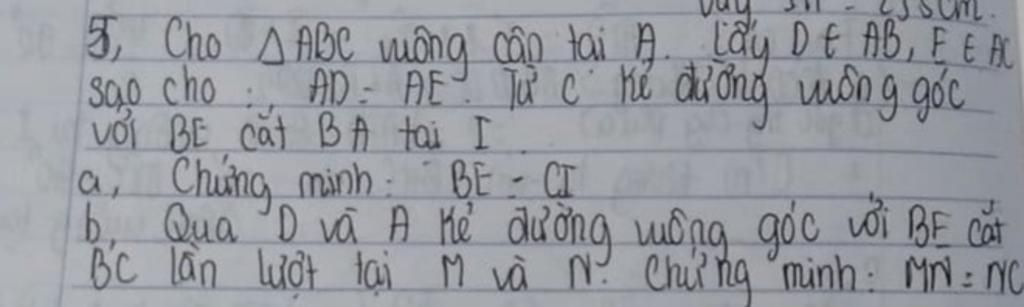 5, Cho △ABC vuông cân tại A. Lấy D ∈ AB, E ∈ AC
sao cho : AD = AE. Từ C kẻ đường vuông góc
với BE cắt BA tại I
a, Chứng minh: BE = CI
b, Qua D và A kẻ đường vuông góc với BE cắt
BC lần lượt tại M và N. Chứng minh: MN = NC